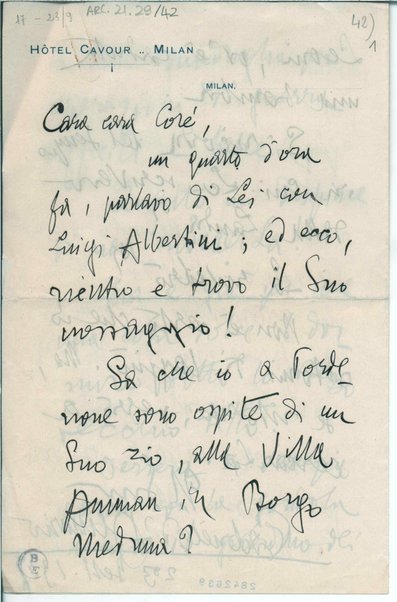 17-23/9
ARC. 21. 29/42
42)
1
HÔTEL CAVOUR .. MILAN
MILAN.
Cara cara Coré,
un quarto d'ora
fa, parlavo di Lei con
Luigi Albertini; ed ecco,
rientro e trovo il Suo
messaggio!
Sa che io a Porde-
none sono ospite di un
Suo zio, alla Villa
Amman in Borgo
Meduna?
2842639